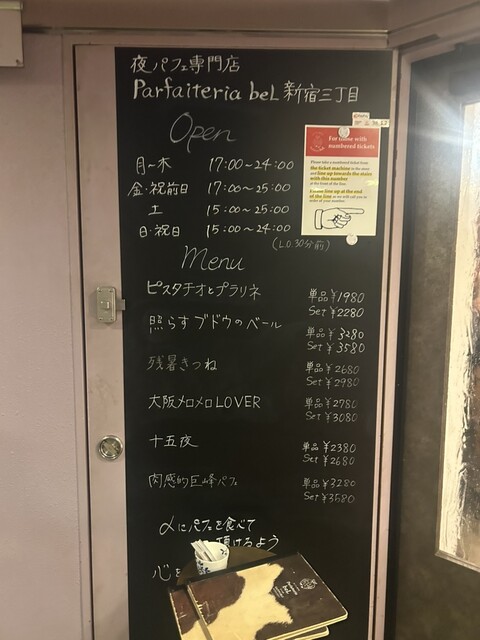 夜パフェ専門店
Parfaiteria beL 新宿三丁目
Open
月~木 17:00~24:00
金・祝前日 17:00~25:00
土 15:00~25:00
日・祝日 15:00~24:00
(L.O.30分前)
For those with
numbered tickets
Please take a numbered ticket from
the ticket machine
and line up towards the stairs
with this number
Please line up at the end
of the line
Menu
ピスタチオとプラリネ 単品 ¥1980
Set ¥2280
照らすブドウのベール 単品 ¥3280
Set ¥3580
残暑きつね 単品 ¥2680
Set ¥2980
大阪メロメロLOVER 単品 ¥2780
Set ¥3080
十五夜 単品 ¥2380
Set ¥2680
肉感的巨峰パフェ 単品 ¥3280
Set ¥3580
にパフェを食べて
頂けるよう
心を